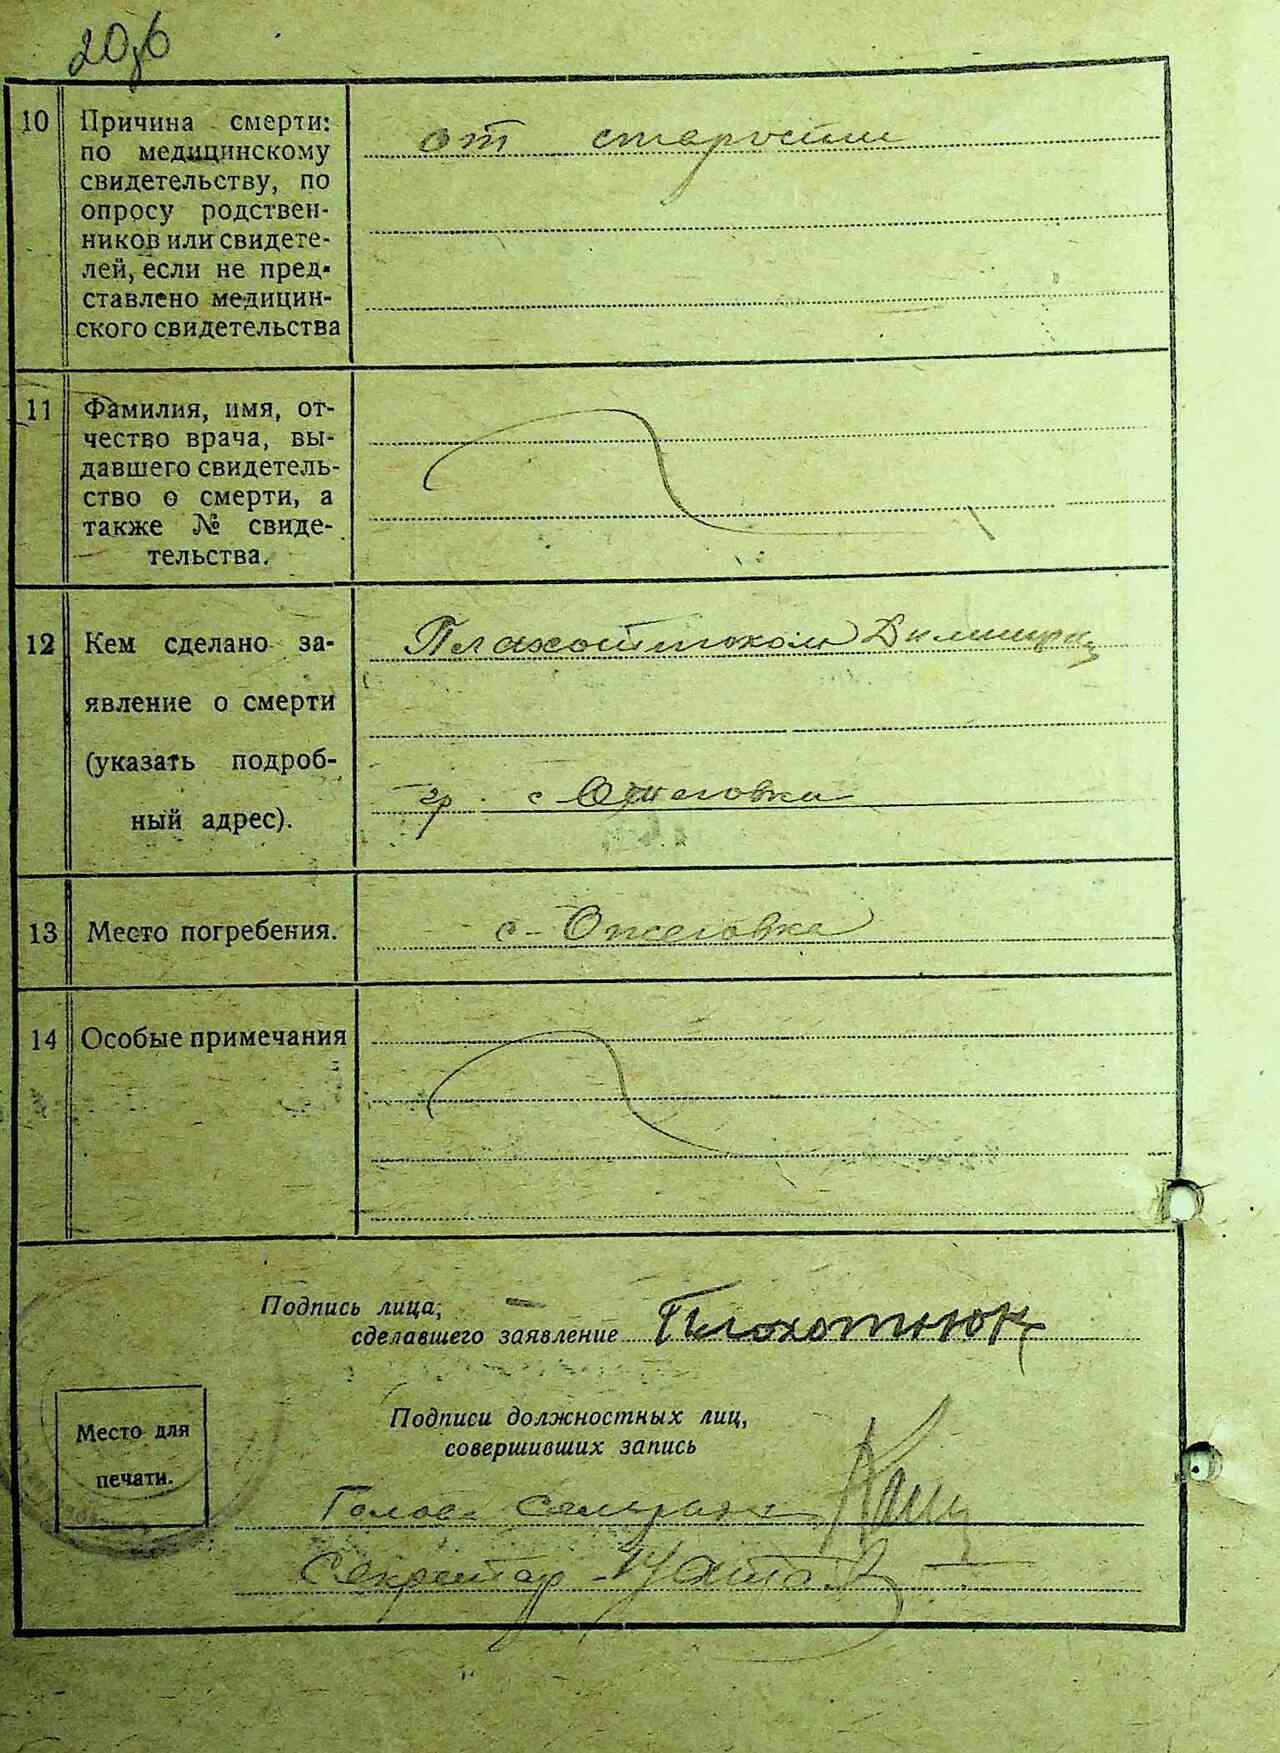 20об
10
Причина смерти:
по медицинскому
свидетельству, по
опросу родствен-
ников или свидете-
лей, если не пред-
ставлено медицин-
ского свидетельства
от старости
11
Фамилия, имя, от-
чество врача, вы-
давшего свидетель-
ство о смерти, а
также № свиде-
тельства.
12
Кем сделано за-
явление о смерти
(указать подроб-
ный адрес).
Плахотнюком
гр. с Ожеговка
13
Место погребения.
с-Ожеговка
14
Особые примечания
Подпись лица,
сделавшего заявление
Плохотнюк
Место для
печати.
Подписи должностных лиц,
совершивших запись
Голова
Секретар